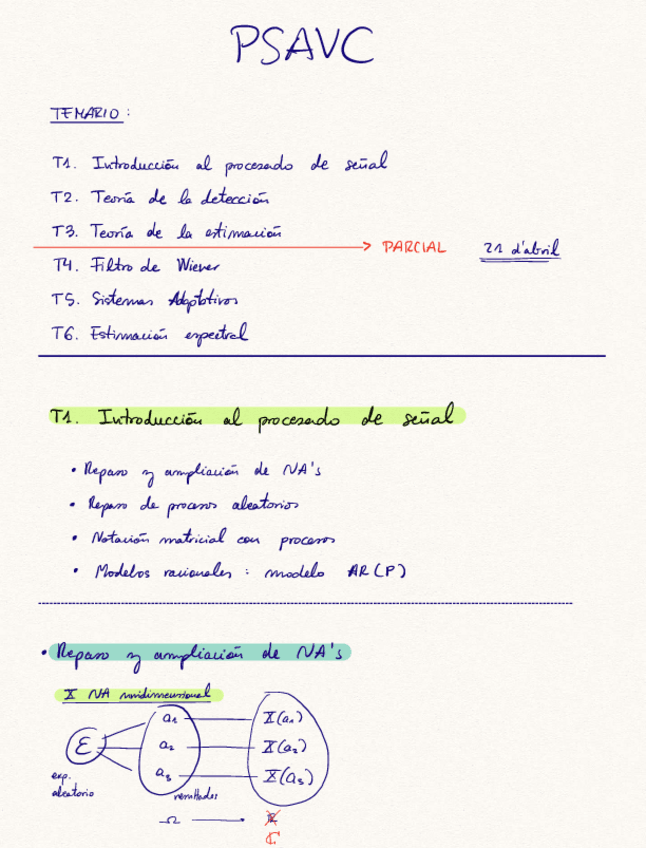 PSAVC
TEMARIO:
T1. Introducción al procesado de señal
T2. Teoría de la detección
T3. Teoría de la estimación
PARCIAL 21 d'abril
T4. Filtro de Wiener
T5. Sistemas Adaptativos
T6. Estimación espectral
T1. Introducción al procesado de señal
• Repaso y ampliación de VA's
• Repaso de procesos aleatorios
• Notación matricial con procesos
• Modelos racionales: modelo AR(P)
• Repaso y ampliación de VA's
X VA unidimensional
a1 X(a1)
ε a2 X(a2)
a3 X(a3)
exp. aleatorio
resultados
Ω R
C